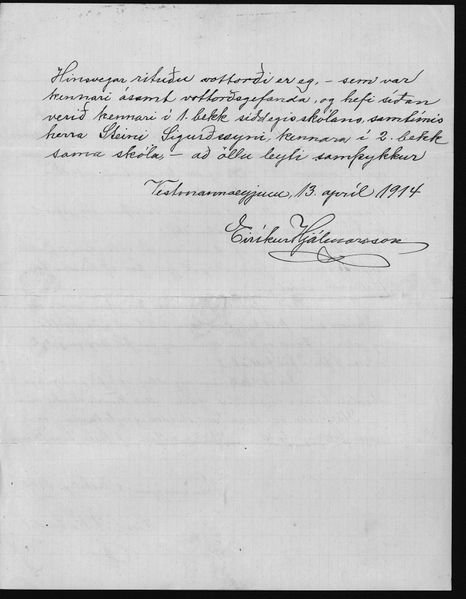 Hinsvegar rituðu vottorði er eg, - sem var
kennari ásamt vottorðsgefanda, og hefi síðan
verið kennari í 1. bekk síðdegisskólans, samhliða
herra Steini Sigurðssyni, kennara í 2. bekk
sama skóla, - að öllu leyti samþykkur
Vestmannaeyjum, 13. apríl 1914
Eiríkur Hjálmarsson